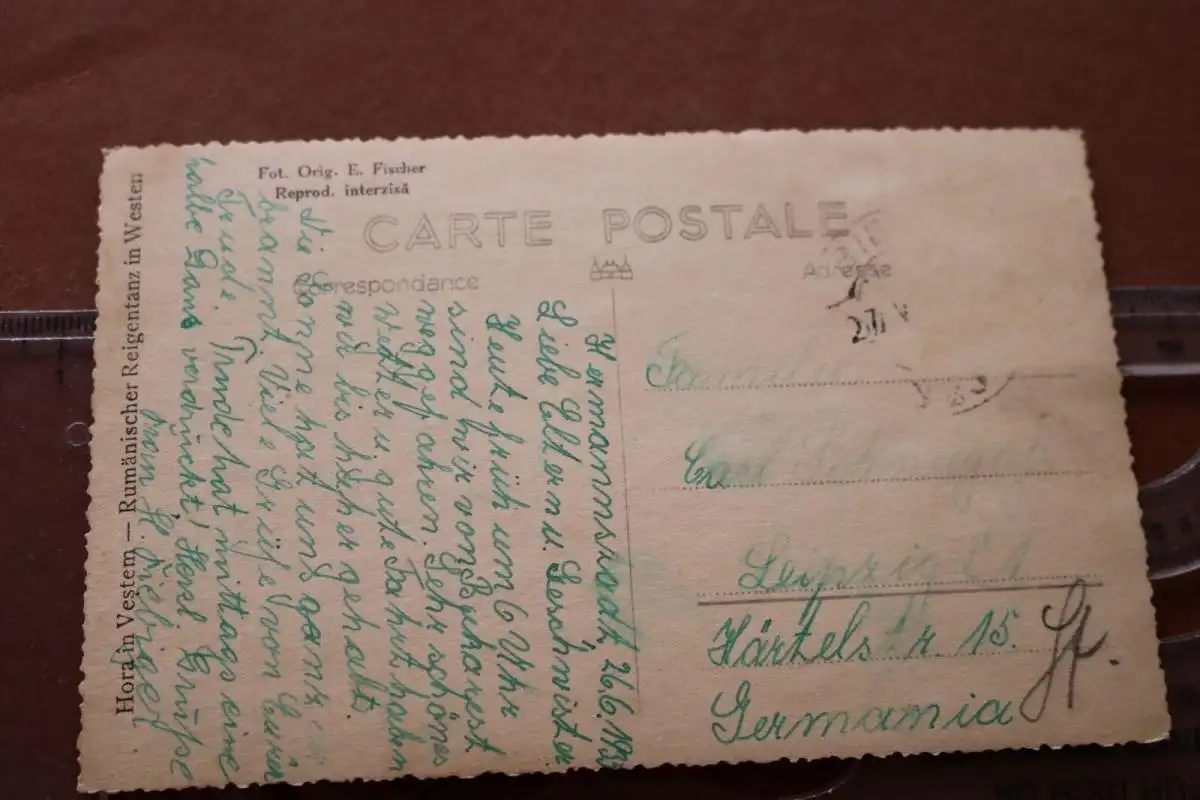 Fot. Orig. E. Fischer
Reprod. interzisă
CARTE POSTALE
Correspondance
Adresse
Hora in Vestem — Rumänischer Reigentanz in Westen
Hermannstadt, 26.6.19
Liebe Eltern u. Geschwister
Heute früh um 6 Uhr
sind wir von Bukarest
weggefahren. Sehr schönes
Wetter u. gute Fahrt haben
wir bis hieher gehabt.
Die Sonne hat uns ganz
brannt. Viele Grüße von Eurer
Trude. Trude hat mittags eine
halbe Gans verdrückt! Herzl Grüße
Familie
Carl
Leipzig C 1
Härtelstr. 15.
Germania
27